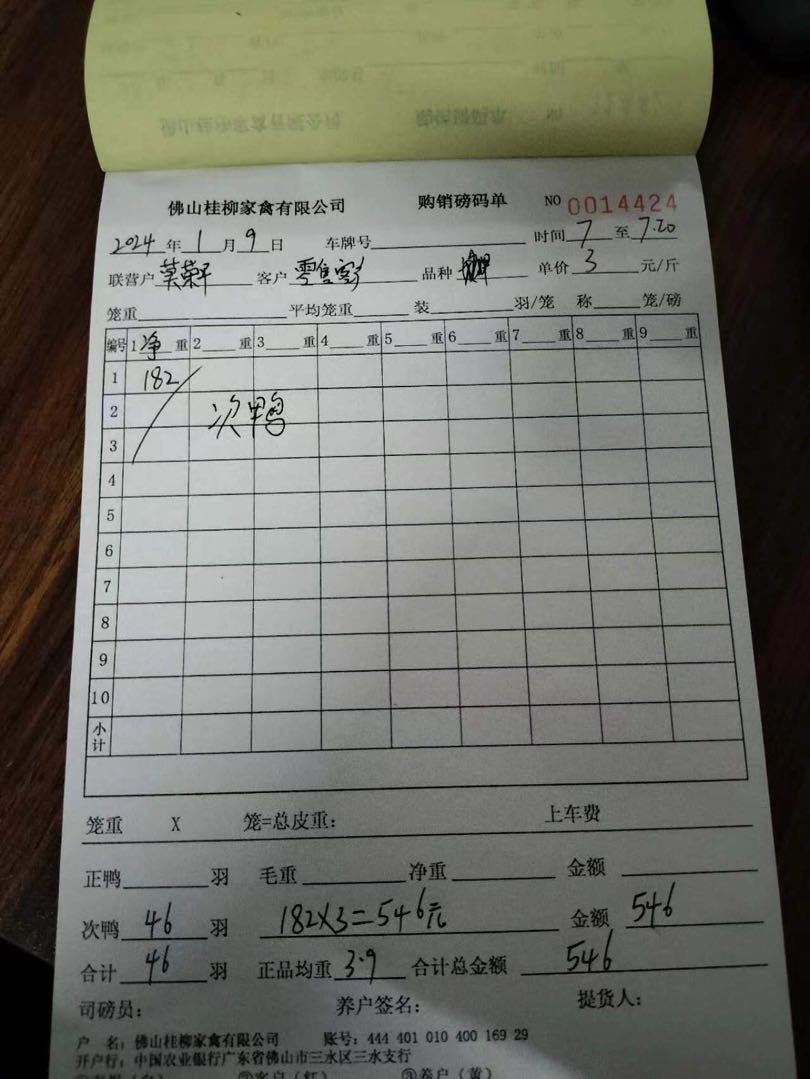 佛山桂柳家禽有限公司 购销磅码单 NO 0014424
2024 年 1 月 9 日 车牌号 时间 7 至 7.20
联营户 莫荣平 客户 零售客户 品种 单价 3 元/斤
笼重 平均笼重 装 羽/笼 称 笼/磅
编号 1 净 重 2 重 3 重 4 重 5 重 6 重 7 重 8 重 9 重
1 182
2 次鸭
3
4
5
6
7
8
9
10
小计
笼重 X 笼=总皮重: 上车费
正鸭 羽 毛重 净重 金额
次鸭 46 羽 182X3=546元 金额 546
合计 46 羽 正品均重 3.9 合计总金额 546
司磅员: 养户签名: 提货人:
户 名: 佛山桂柳家禽有限公司 账号: 444 401 010 400 169 29
开户行: 中国农业银行广东省佛山市三水区三水支行
②客户(红) ③养户(黄)